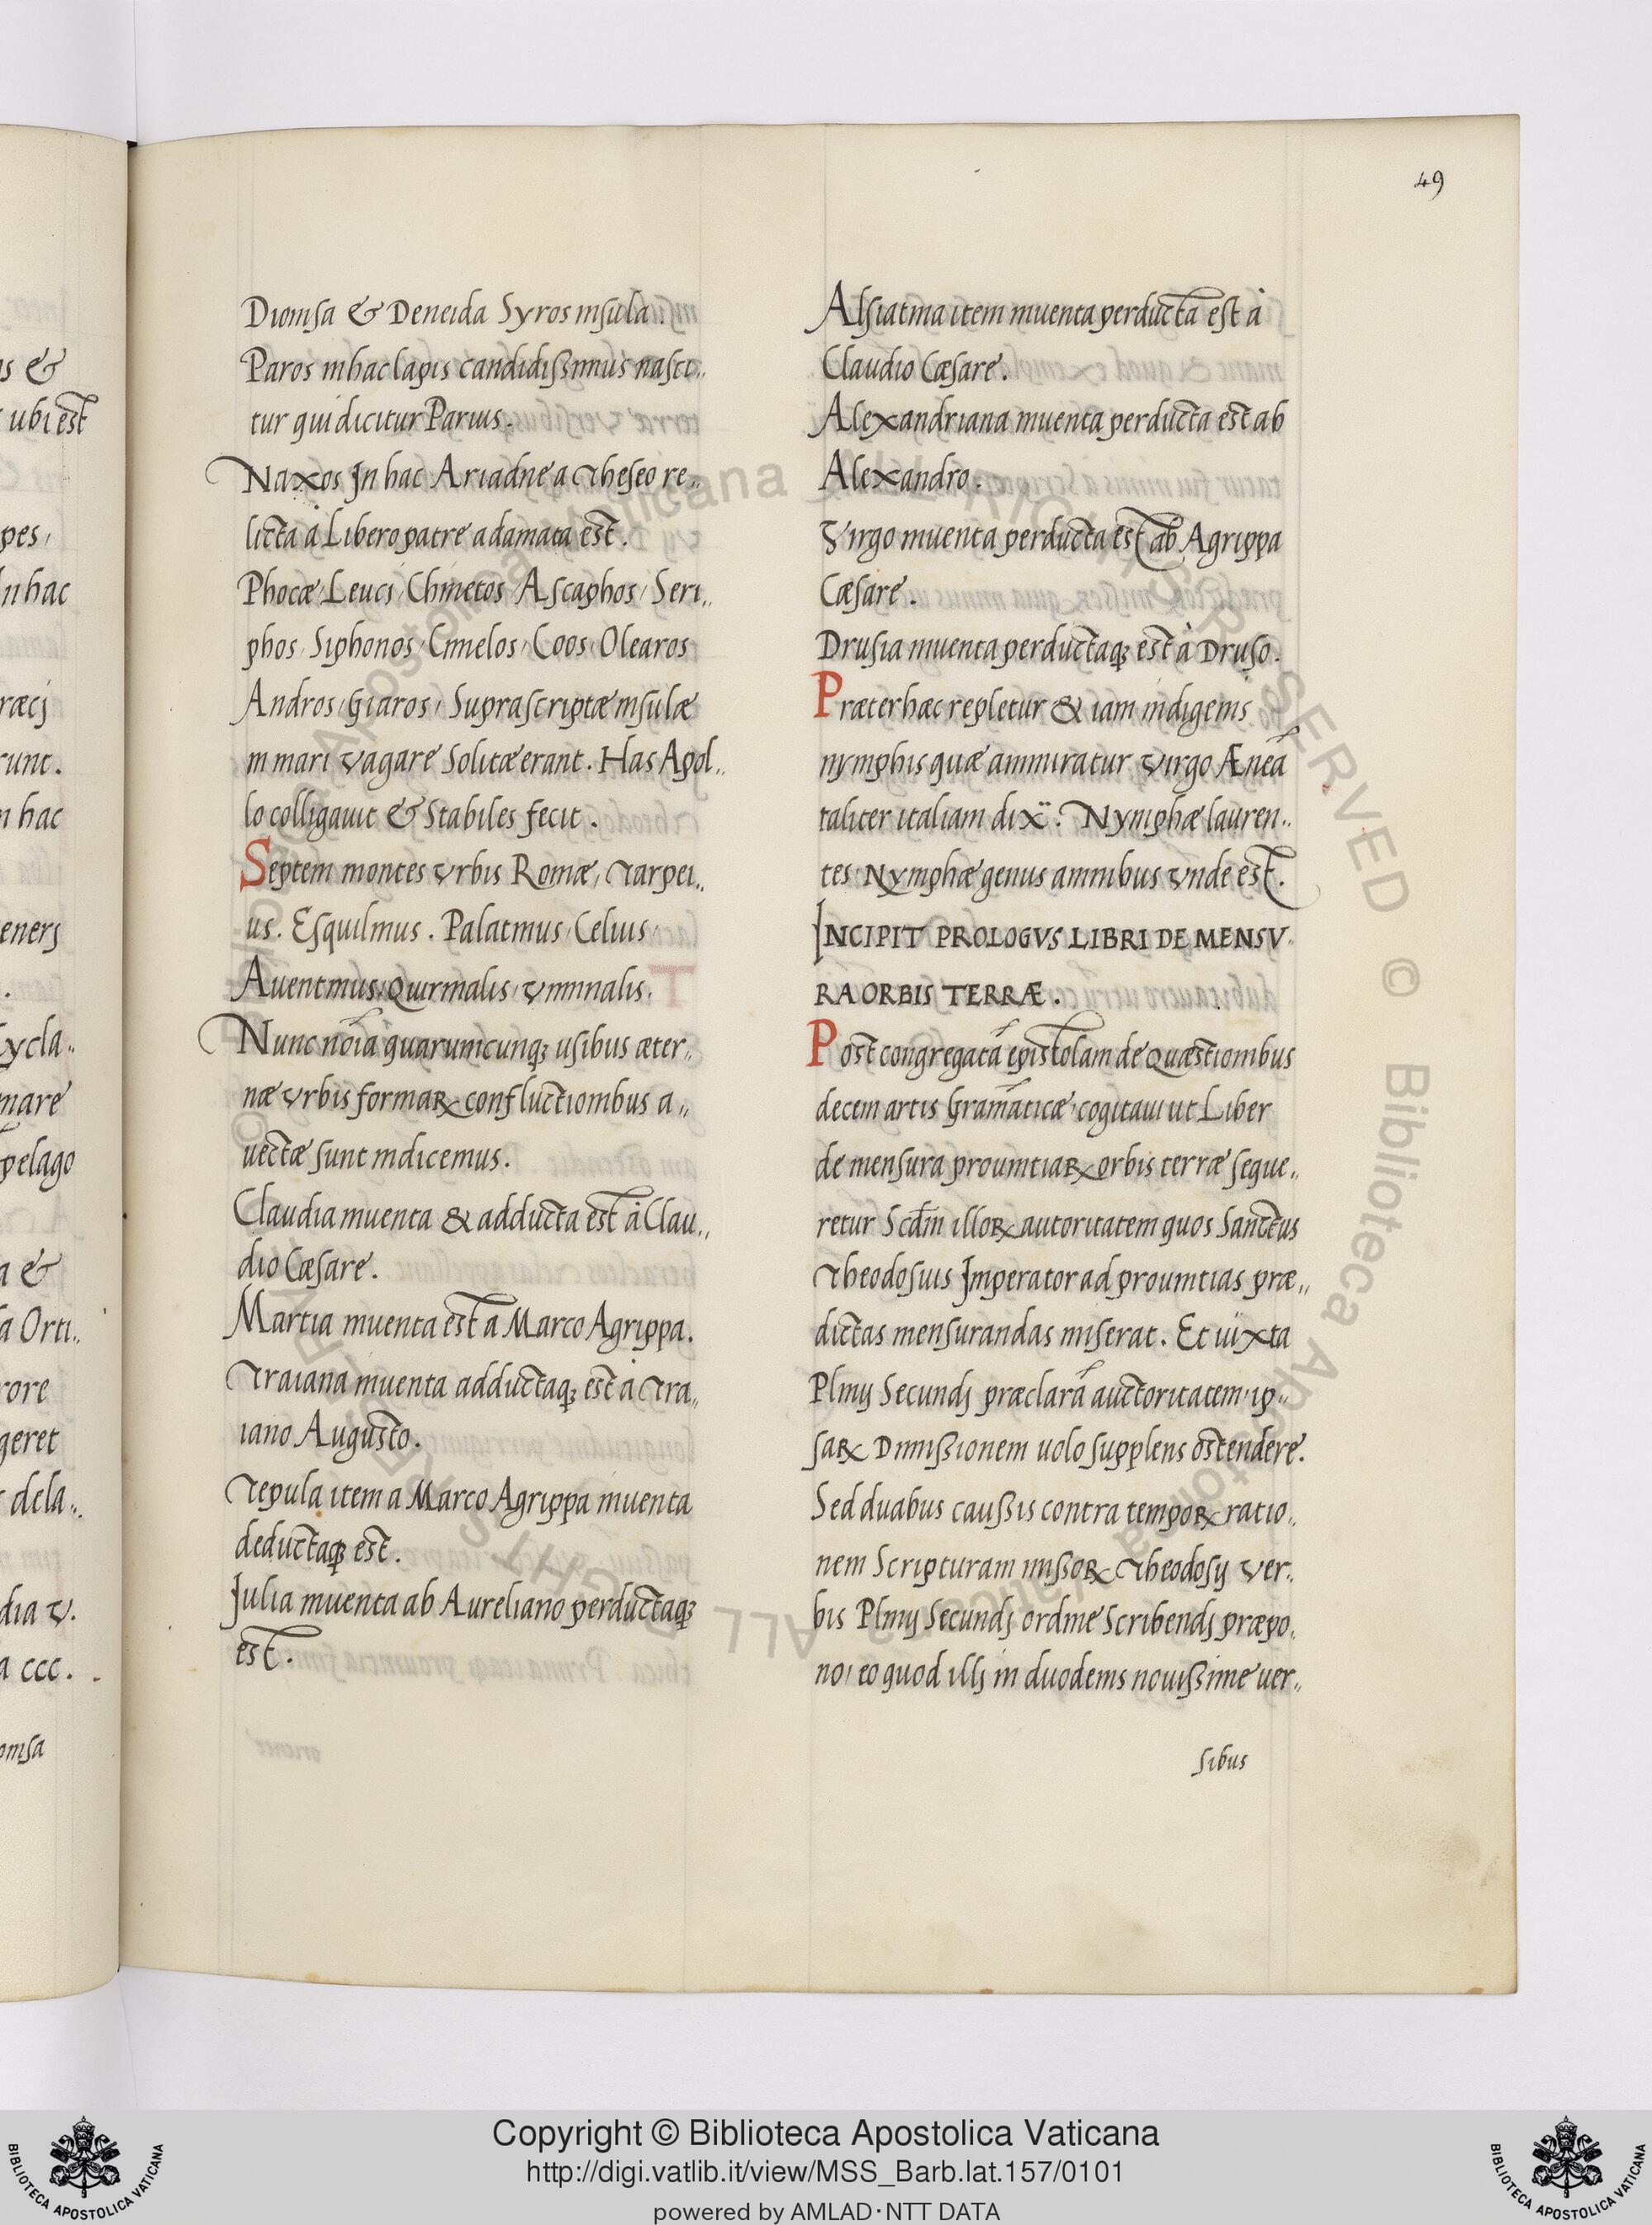 49
Dionisa & Deneida Syros insula.
Paros in hac lapis candidißimus nasci..
tur qui dicitur Parius.
Naxos In hac Ariadne a Theseo re..
licta à Libero patre adamata est.
Phocæ, Leuci, Chinetos, Ascaphos, Seri..
phos, Siphonos, Cimelos, Coos, Olearos
Andros, Giaros, Suprascriptæ insulæ
in mari vagare Solitæ erant. Has Apol..
lo colligavit & Stabiles fecit.
Septem montes vrbis Romæ, Tarpei..
us. Esquilinus. Palatinus, Celius,
Aventinus, Quirinalis, Viminalis.
Nunc noı̃a quarumcunqꝫ usibus æter..
næ vrbis formaꝝ confluctionibus a..
uectæ sunt indicemus.
Claudia inuenta & adducta est à Clau..
dio Cæsare.
Martia inuenta est a Marco Agrippa.
Traiana inuenta adductaqꝫ est à Tra..
iano Augusto.
Tepula item a Marco Agrippa inuenta
deductaqꝫ est.
Julia inuenta ab Aureliano perductaqꝫ
est.
Alsiatina item inuenta perducta est à
Claudio Cæsare.
Alexandriana inuenta perducta est ab
Alexandro.
Virgo inuenta perducta est ab Agrippa
Cæsare.
Drusia inuenta perductaqꝫ est à Druso.
Præter hæc repletur & iam indigenis
nymphis quæ ammiratur virgo Æneã
taliter italiam diẍ: Nymphæ lauren..
tes Nymphæ genus amnibus vnde est.
INCIPIT PROLOGVS LIBRI DE MENSV..
RA ORBIS TERRÆ.
Post congregatã epistolam de quæstionibus
decem artis Gram̃aticæ, cogitaui ut Liber
de mensura prouintiaꝝ orbis terræ seque..
retur Scđm illoꝝ autoritatem quos Sanctus
Theodosius Imperator ad prouintias præ..
dictas mensurandas miserat. Et iuxta
Plinij Secundj præclarã auctoritatem, ip..
saꝝ Dimißionem uolo supplens ostendere.
Sed duabus caußis contra tempoꝝ ratio..
nem Scripturam mißoꝝ Theodosij ver..
bis Plinij Secundj ordine Scribendj præpo..
no, eo quod illj in duodenis nouißime uer..
sibus
Copyright © Biblioteca Apostolica Vaticana
http://digi.vatlib.it/view/MSS_Barb.lat.157/0101
powered by AMLAD·NTT DATA